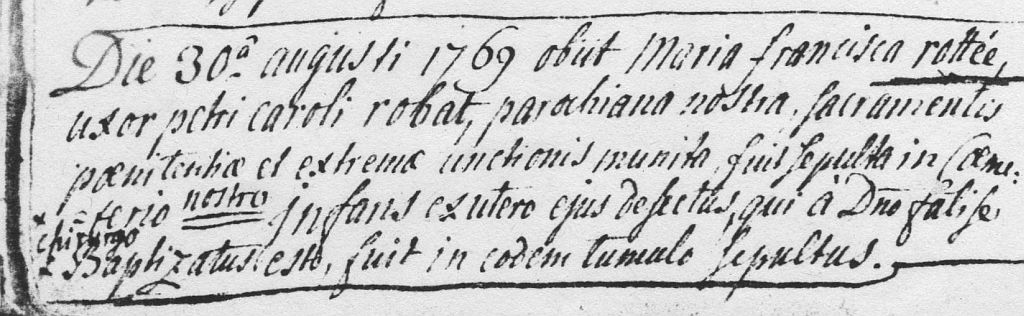 Die 30.ª augusti 1769 obiit Maria francisca rottée,
uxor petri caroli robat, parochiana nostra, sacramentis
pœnitentiæ et extremæ unctionis munita, fuit sepulta in Cœme-
terio nostro infans ex utero ejus desectus, qui à Dño falise
x chirurgo
x Baptizatus est, fuit in eodem tumulo sepultus.